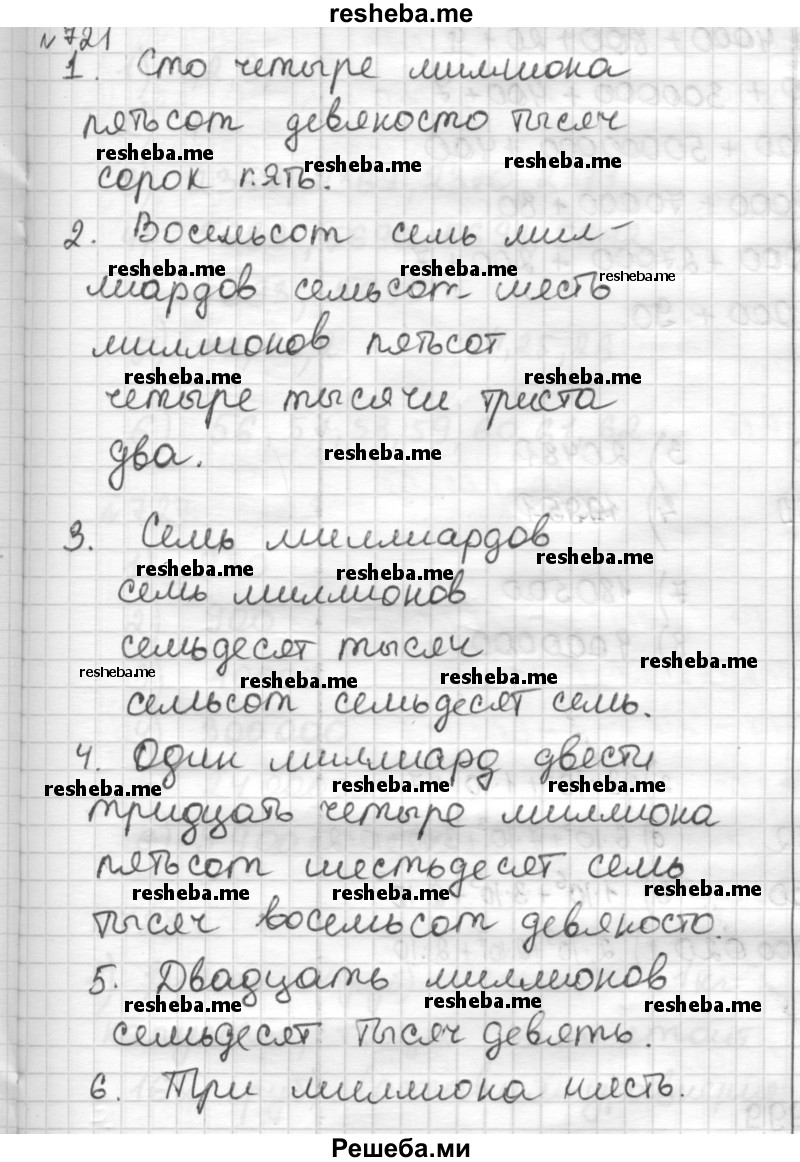 resheba.me
№721
1. Сто четыре миллиона
пятьсот девяносто тысяч
resheba.me resheba.me resheba.me
сорок пять.
2. Восемьсот семь мил-
resheba.me resheba.me resheba.me
лиардов семьсот шесть
миллионов пятьсот
resheba.me resheba.me
четыре тысячи триста
два. resheba.me
3. Семь миллиардов
resheba.me resheba.me resheba.me
семь миллионов
семьдесят тысяч
resheba.me resheba.me resheba.me resheba.me
семьсот семьдесят семь.
4. Один миллиард двести
resheba.me resheba.me resheba.me
тридцать четыре миллиона
пятьсот шестьдесят семь
resheba.me resheba.me resheba.me
тысяч восемьсот девяносто.
5. Двадцать миллионов
resheba.me resheba.me resheba.me
семьдесят тысяч девять.
6. Три миллиона шесть.
Решеба.ми